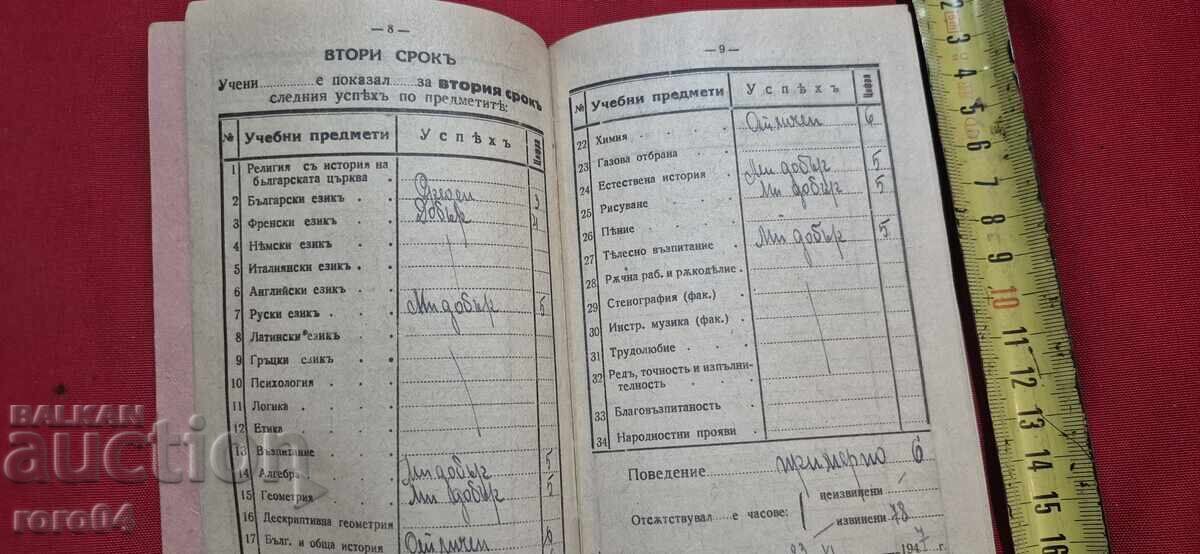 — 8 —
ВТОРИ СРОКЪ
Учени........... е показал..... за ВТОРИЯ СРОКЪ
следния успѣхъ по предметитѣ:
№ Учебни предмети Успѣхъ Цифра
1 Религия съ история на
българската църква
2 Български езикъ Среден 3
3 Френски езикъ Добър 4
4 Нѣмски езикъ
5 Италиянски езикъ
6 Английски езикъ
7 Руски езикъ Мн добър 5
8 Латински езикъ
9 Гръцки езикъ
10 Психология
11 Логика
12 Етика
13 Възпитание
14 Алгебра Мн добър 5
15 Геометрия Мн добър 5
16 Дескриптивна геометрия
17 Бълг. и обща история Отличен 6
— 9 —
№ Учебни предмети Успѣхъ Цифра
22 Химия Отличен 6
23 Газова отбрана
24 Естествена история Мн добър 5
25 Рисуване Мн добър 5
26 Пѣние
27 Тѣлесно възпитание Мн добър 5
28 Рѫчна раб. и рѫкодѣлие
29 Стенография (фак.)
30 Инстр. музика (фак.)
31 Трудолюбие
32 Редъ, точность и изпълни-
телность
33 Благовъзпитаность
34 Народностни прояви
Поведение примерно 6
неизвинени
Отсѫтствувал....е часове:
извинени 78
23 VI 1947 г.
BALKAN
auction
roro64
2 3 4 5 6 7 8 9 10 11 12 13 14 15 16